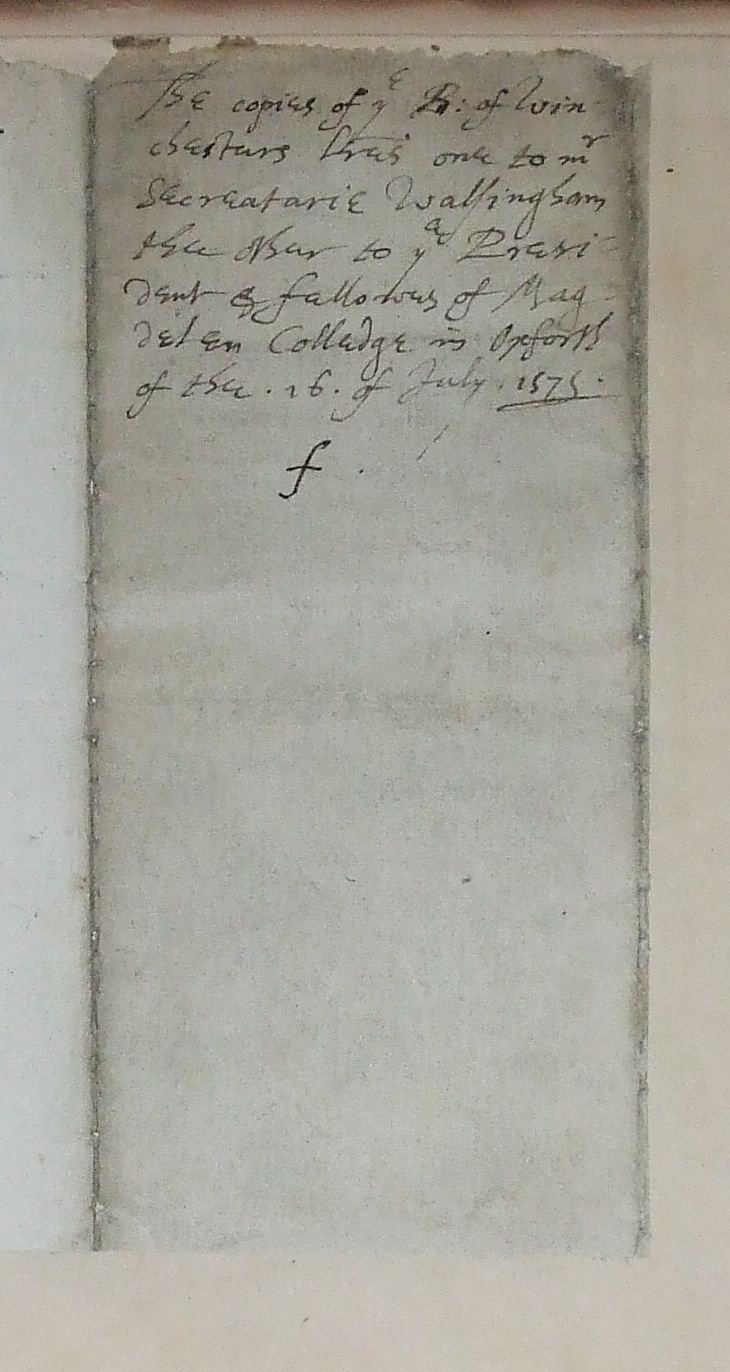 The copies of yᵉ B: of Win
chesters lrēs one to mʳ
Secreatarie Walsingham
thee other to yᵉ Presi=
dent & fellowes of Mag=
delen Colledge in Oxforth
of thee .16. of July. 1575.
f